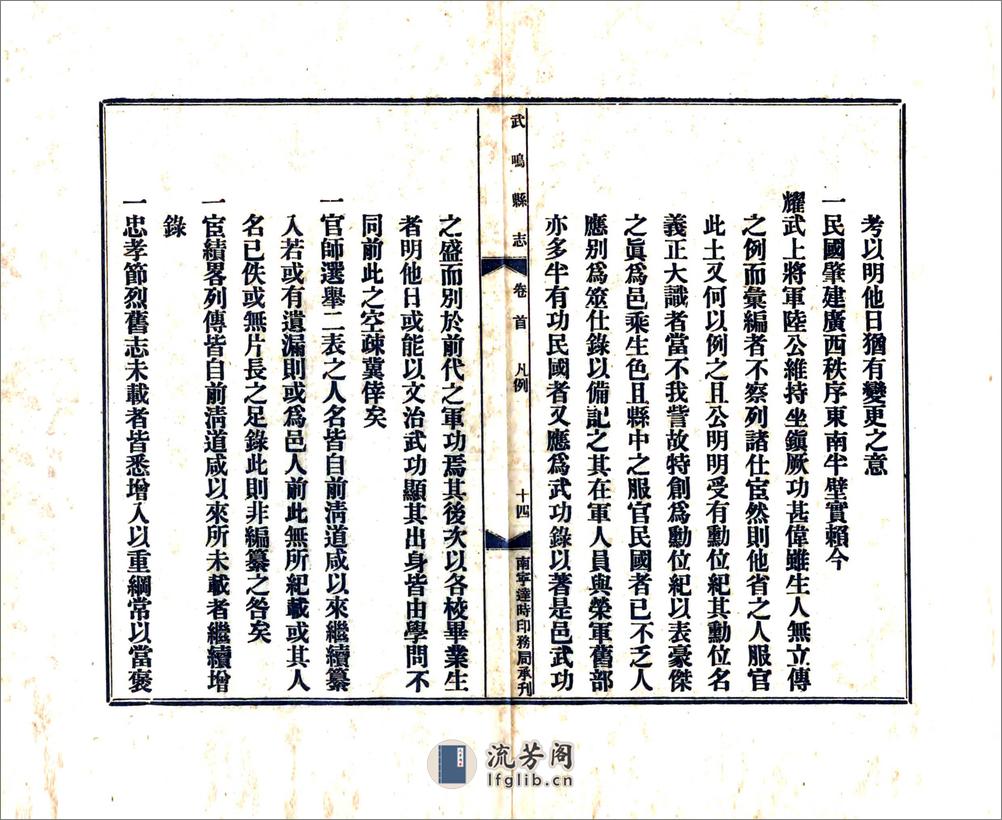 考以明他日猶有變更之意
一民國肇建廣西秩序東南半壁實賴今
耀武上將軍陸公維持坐鎭厥功甚偉雖生人無立傳
之例而彙編者不察列諸仕宦然則他省之人服官
此土又何以例之且公明明受有勳位紀其勳位名
義正大識者當不我訾故特創爲勳位紀以表豪傑
之眞爲邑乘生色且縣中之服官民國者已不乏人
應別爲筮仕錄以備記之其在軍人員與榮軍舊部
亦多半有功民國者又應爲武功錄以著是邑武功
武鳴縣志 卷首 凡例 十四 南寧達時印務局承刋
之盛而別於前代之軍功焉其後次以各校畢業生
者明他日或能以文治武功顯其出身皆由學問不
同前此之空疎冀倖矣
一官師選舉二表之人名皆自前淸道咸以來繼續纂
入若或有遺漏則或爲邑人前此無所紀載或其人
名已佚或無片長之足錄此則非編纂之咎矣
一宦績畧列傳皆自前淸道咸以來所未載者繼續增
錄
一忠孝節烈舊志未載者皆悉增入以重綱常以當褒
流芳阁
lfglib.cn